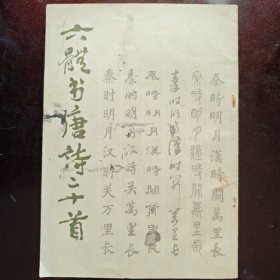 六體书唐詩二十首
秦時明月漢時關萬里長
秦時明月漢時關萬里長
秦时明月漢时关万里长
秦時明月漢時關萬里長
秦时明月汉时关萬里长
秦时明月汉时关万里长